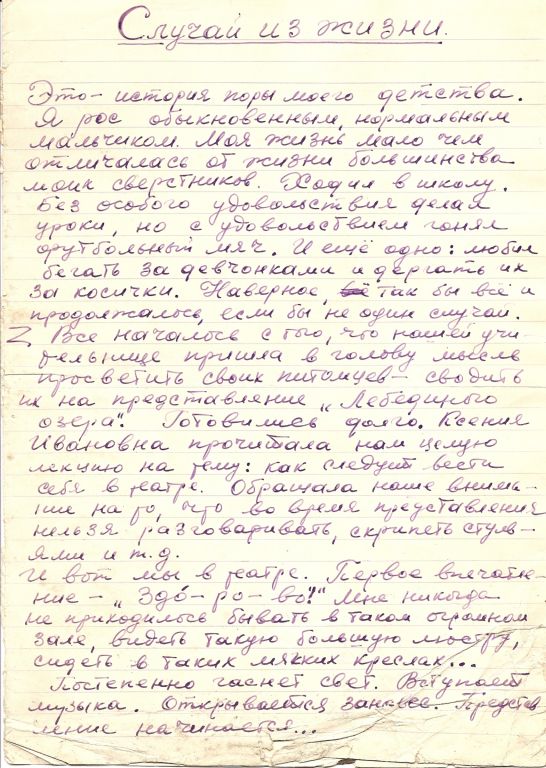 Случай из жизни.
Это - история поры моего детства.
Я рос обыкновенным, нормальным
мальчиком. Моя жизнь мало чем
отличалась от жизни большинства
моих сверстников. Ходил в школу.
Без особого удовольствия делал
уроки, но с удовольствием гонял
футбольный мяч. И ещё одно: любил
бегать за девчонками и дергать их
за косички. Наверное, так бы всё и
продолжалось, если бы не один случай.
Z Все началось с того, что нашей учи-
тельнице пришла в голову мысль
просветить своих питомцев - сводить
их на представление „Лебединого
озера". Готовились долго. Ксения
Ивановна прочитала нам целую
лекцию на тему: как следует вести
себя в театре. Обращала наше внима-
ние на то, что во время представления
нельзя разговаривать, скрипеть стуль-
ями и т.д.
И вот мы в театре. Первое впечатле-
ние - „Здо́-ро-во!" Мне никогда
не приходилось бывать в таком огромном
зале, видеть такую большую люстру,
сидеть в таких мягких креслах...
Постепенно гаснет свет. Вступает
музыка. Открывается занавес. Представ
ление начинается...